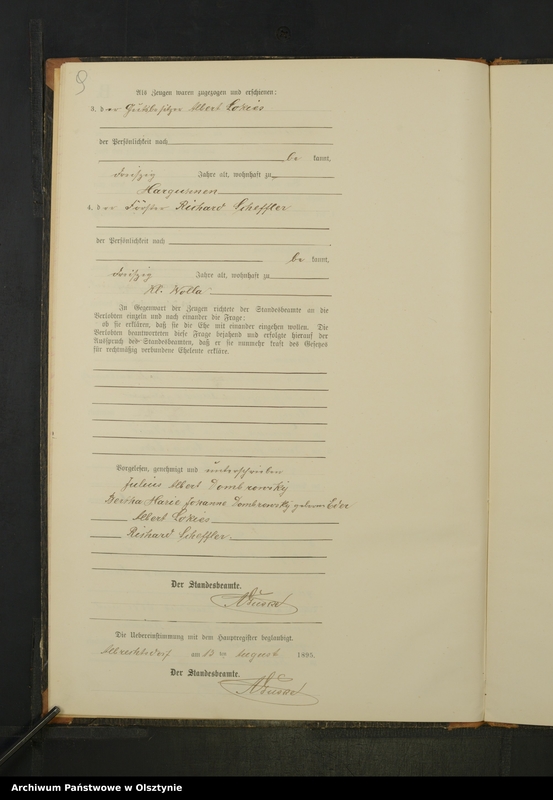 Als Zeugen waren zugezogen und erschienen:
3. der Gutsbesitzer Albert Lokies
der Persönlichkeit nach
be kannt,
dreißig Jahre alt, wohnhaft zu
4. der Förster Richard Scheffler
der Persönlichkeit nach
be kannt,
dreißig Jahre alt, wohnhaft zu
Kl. Wolla
In Gegenwart der Zeugen richtete der Standesbeamte an die
Verlobten einzeln und nach einander die Frage:
ob sie erklären, daß sie die Ehe mit einander eingehen wollen. Die
Verlobten beantworteten diese Frage bejahend und erfolgte hierauf der
Ausspruch des Standesbeamten, daß er sie nunmehr kraft des Gesetzes
für rechtmäßig verbundene Eheleute erkläre.
Vorgelesen, genehmigt und unterschrieben
Julius Albert Dombrowsky
Bertha Marie Johanne Dombrowsky geborene
Albert Lokies
Richard Scheffler.
Der Standesbeamte.
Die Uebereinstimmung mit dem Hauptregister beglaubigt.
Albrechtsdorf am 13 ten August 1895.
Der Standesbeamte.
Archiwum Państwowe w Olsztynie